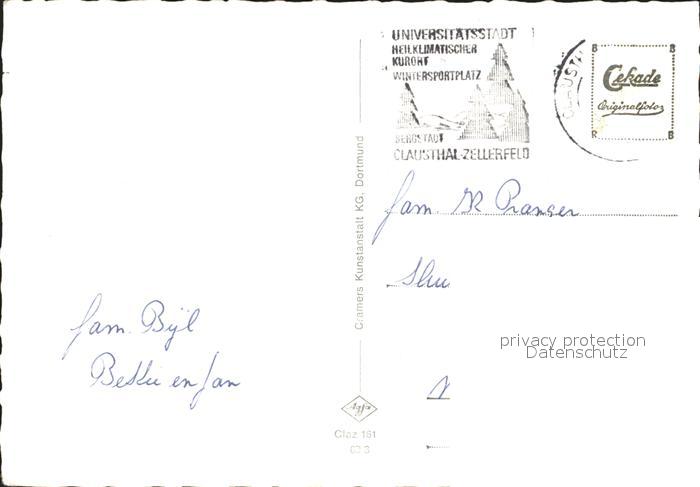 UNIVERSITÄTSSTADT
HEILKLIMATISCHER
KURORT
WINTERSPORTPLATZ
BERGSTADT
CLAUSTHAL-ZELLERFELD
CLAUST
B B
Cekade
Originalfoto
R B
Cramers Kunstanstalt KG, Dortmund
fam.
privacy protection
Datenschutz
fam. Bijl
en Jan
Agfa
Claz 161